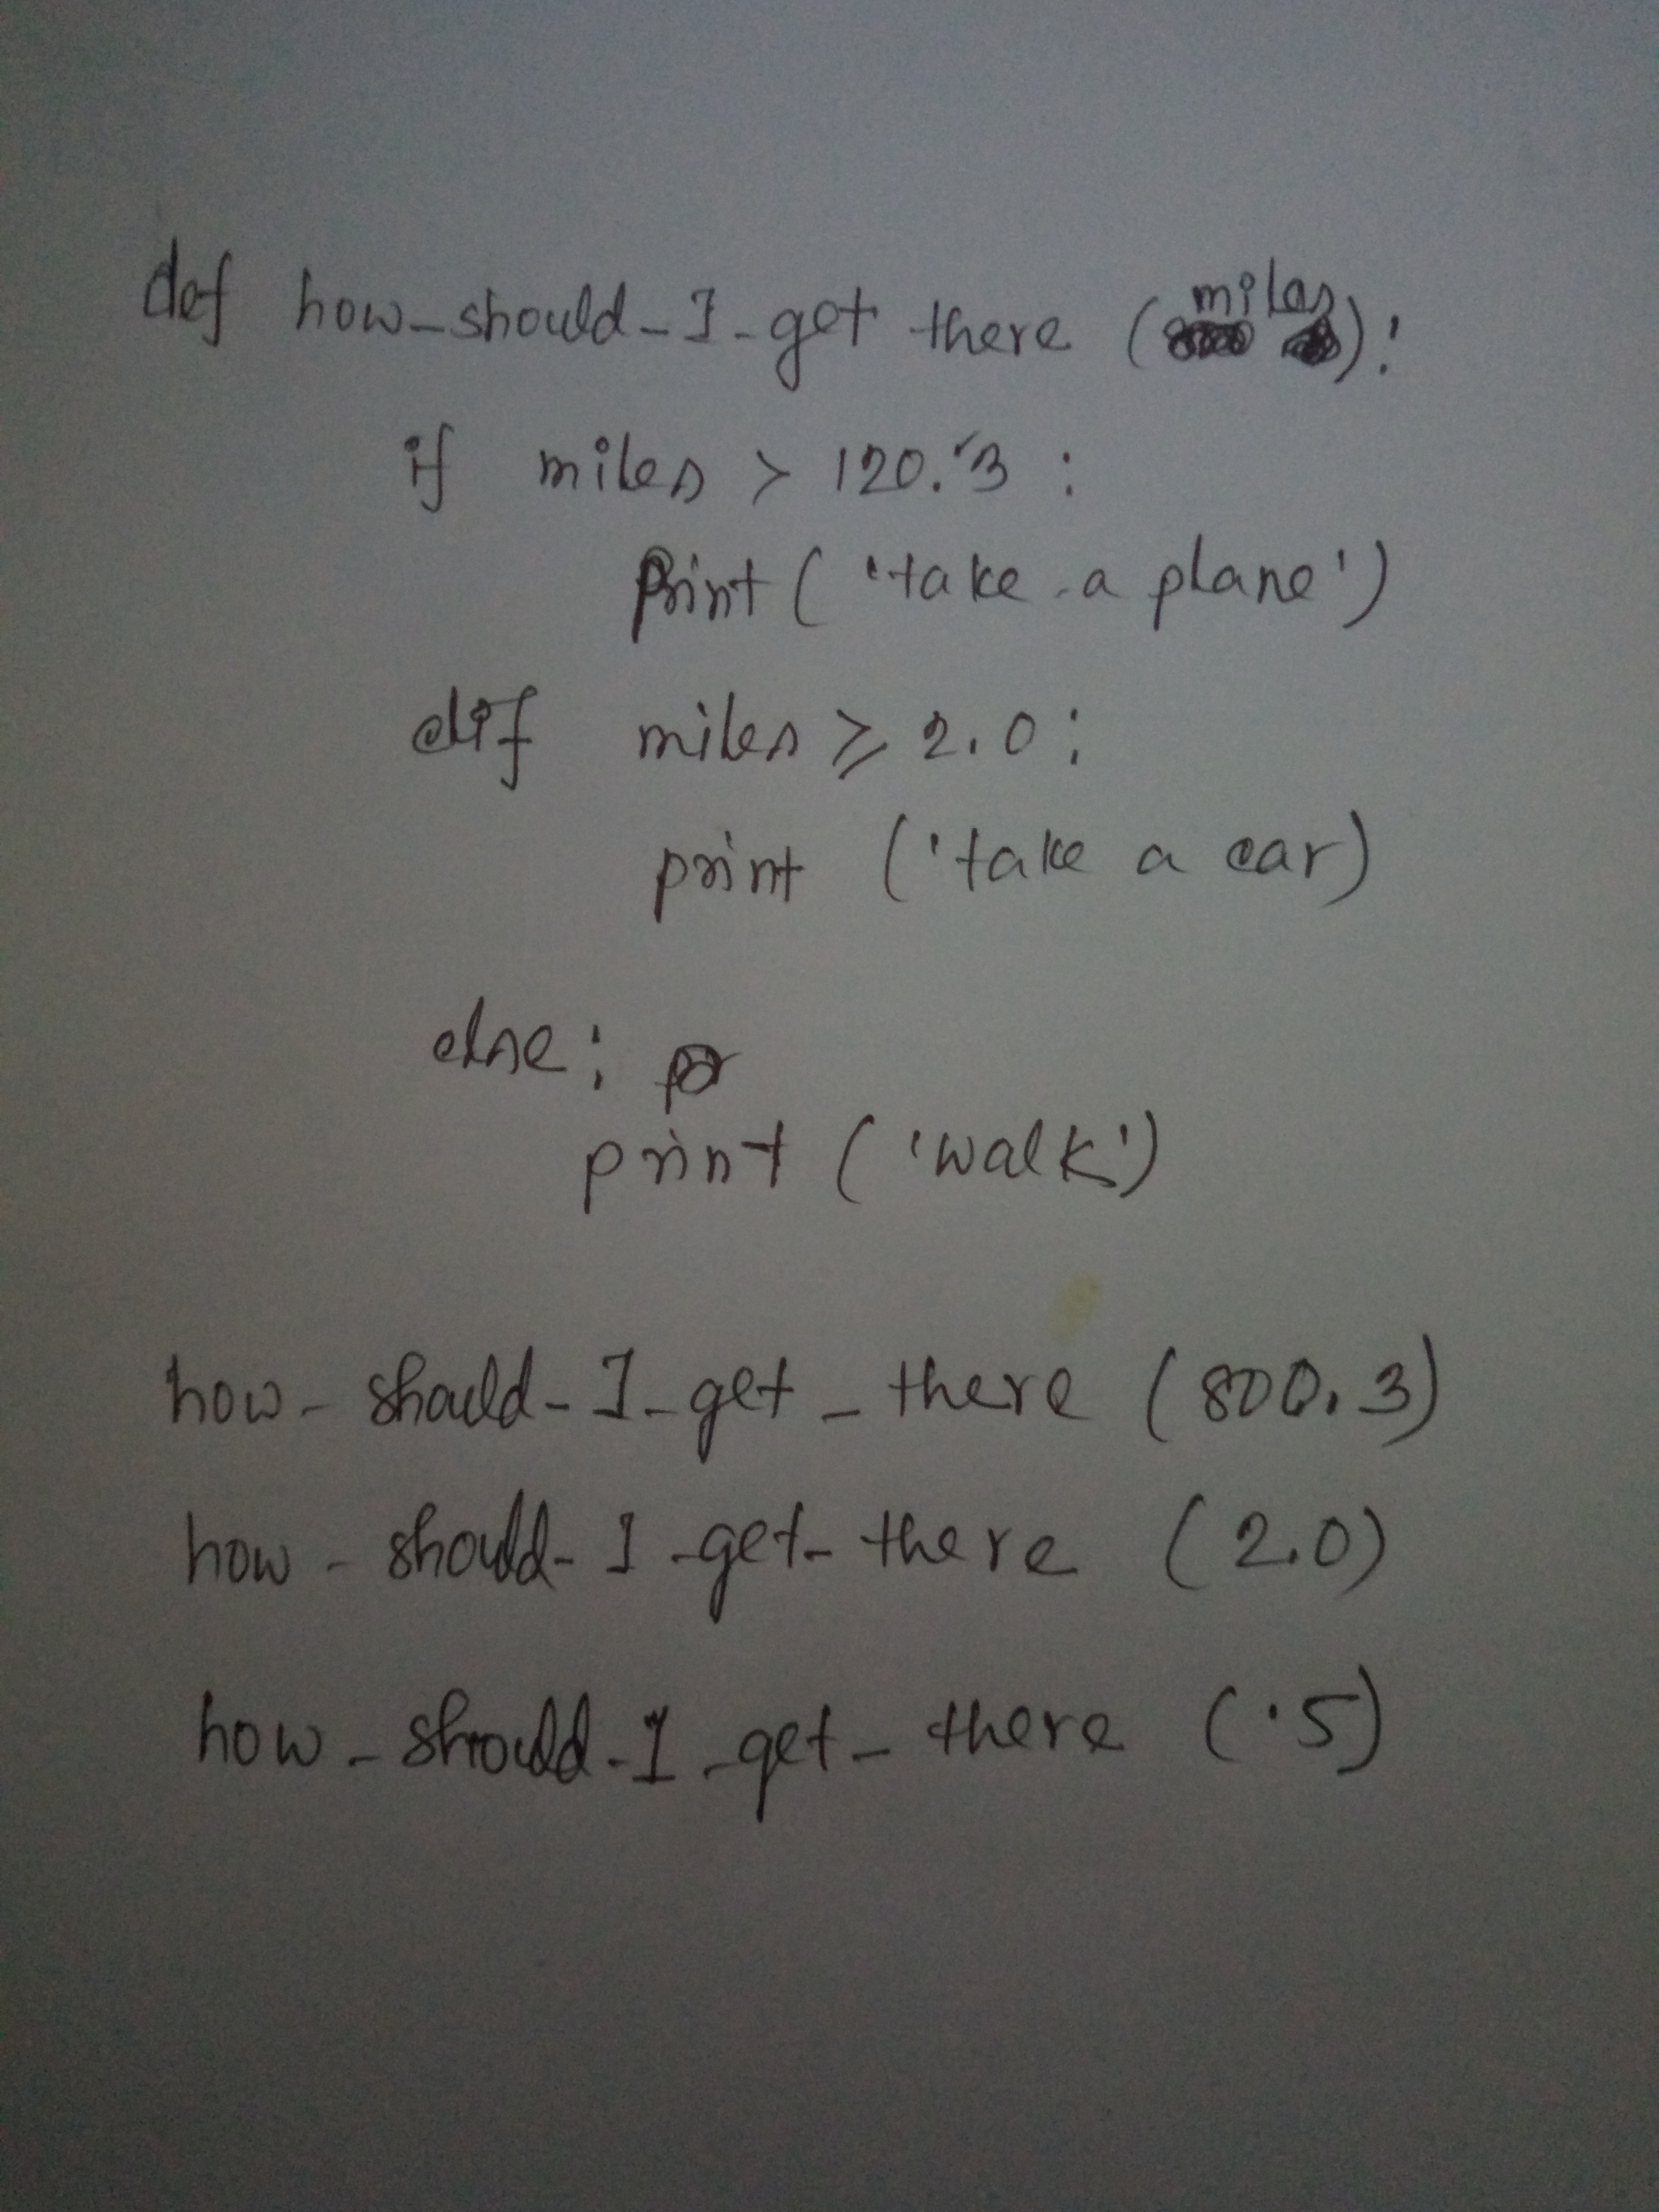 def how_should_I_get there (miles):
if miles > 120.3 :
print ( 'take a plane')
elif miles ≥ 2.0 :
print ('take a car)
else :
print ('walk')
how_should_I_get_there (800.3)
how_should_I_get_there (2.0)
how_should_I_get_there (.5)